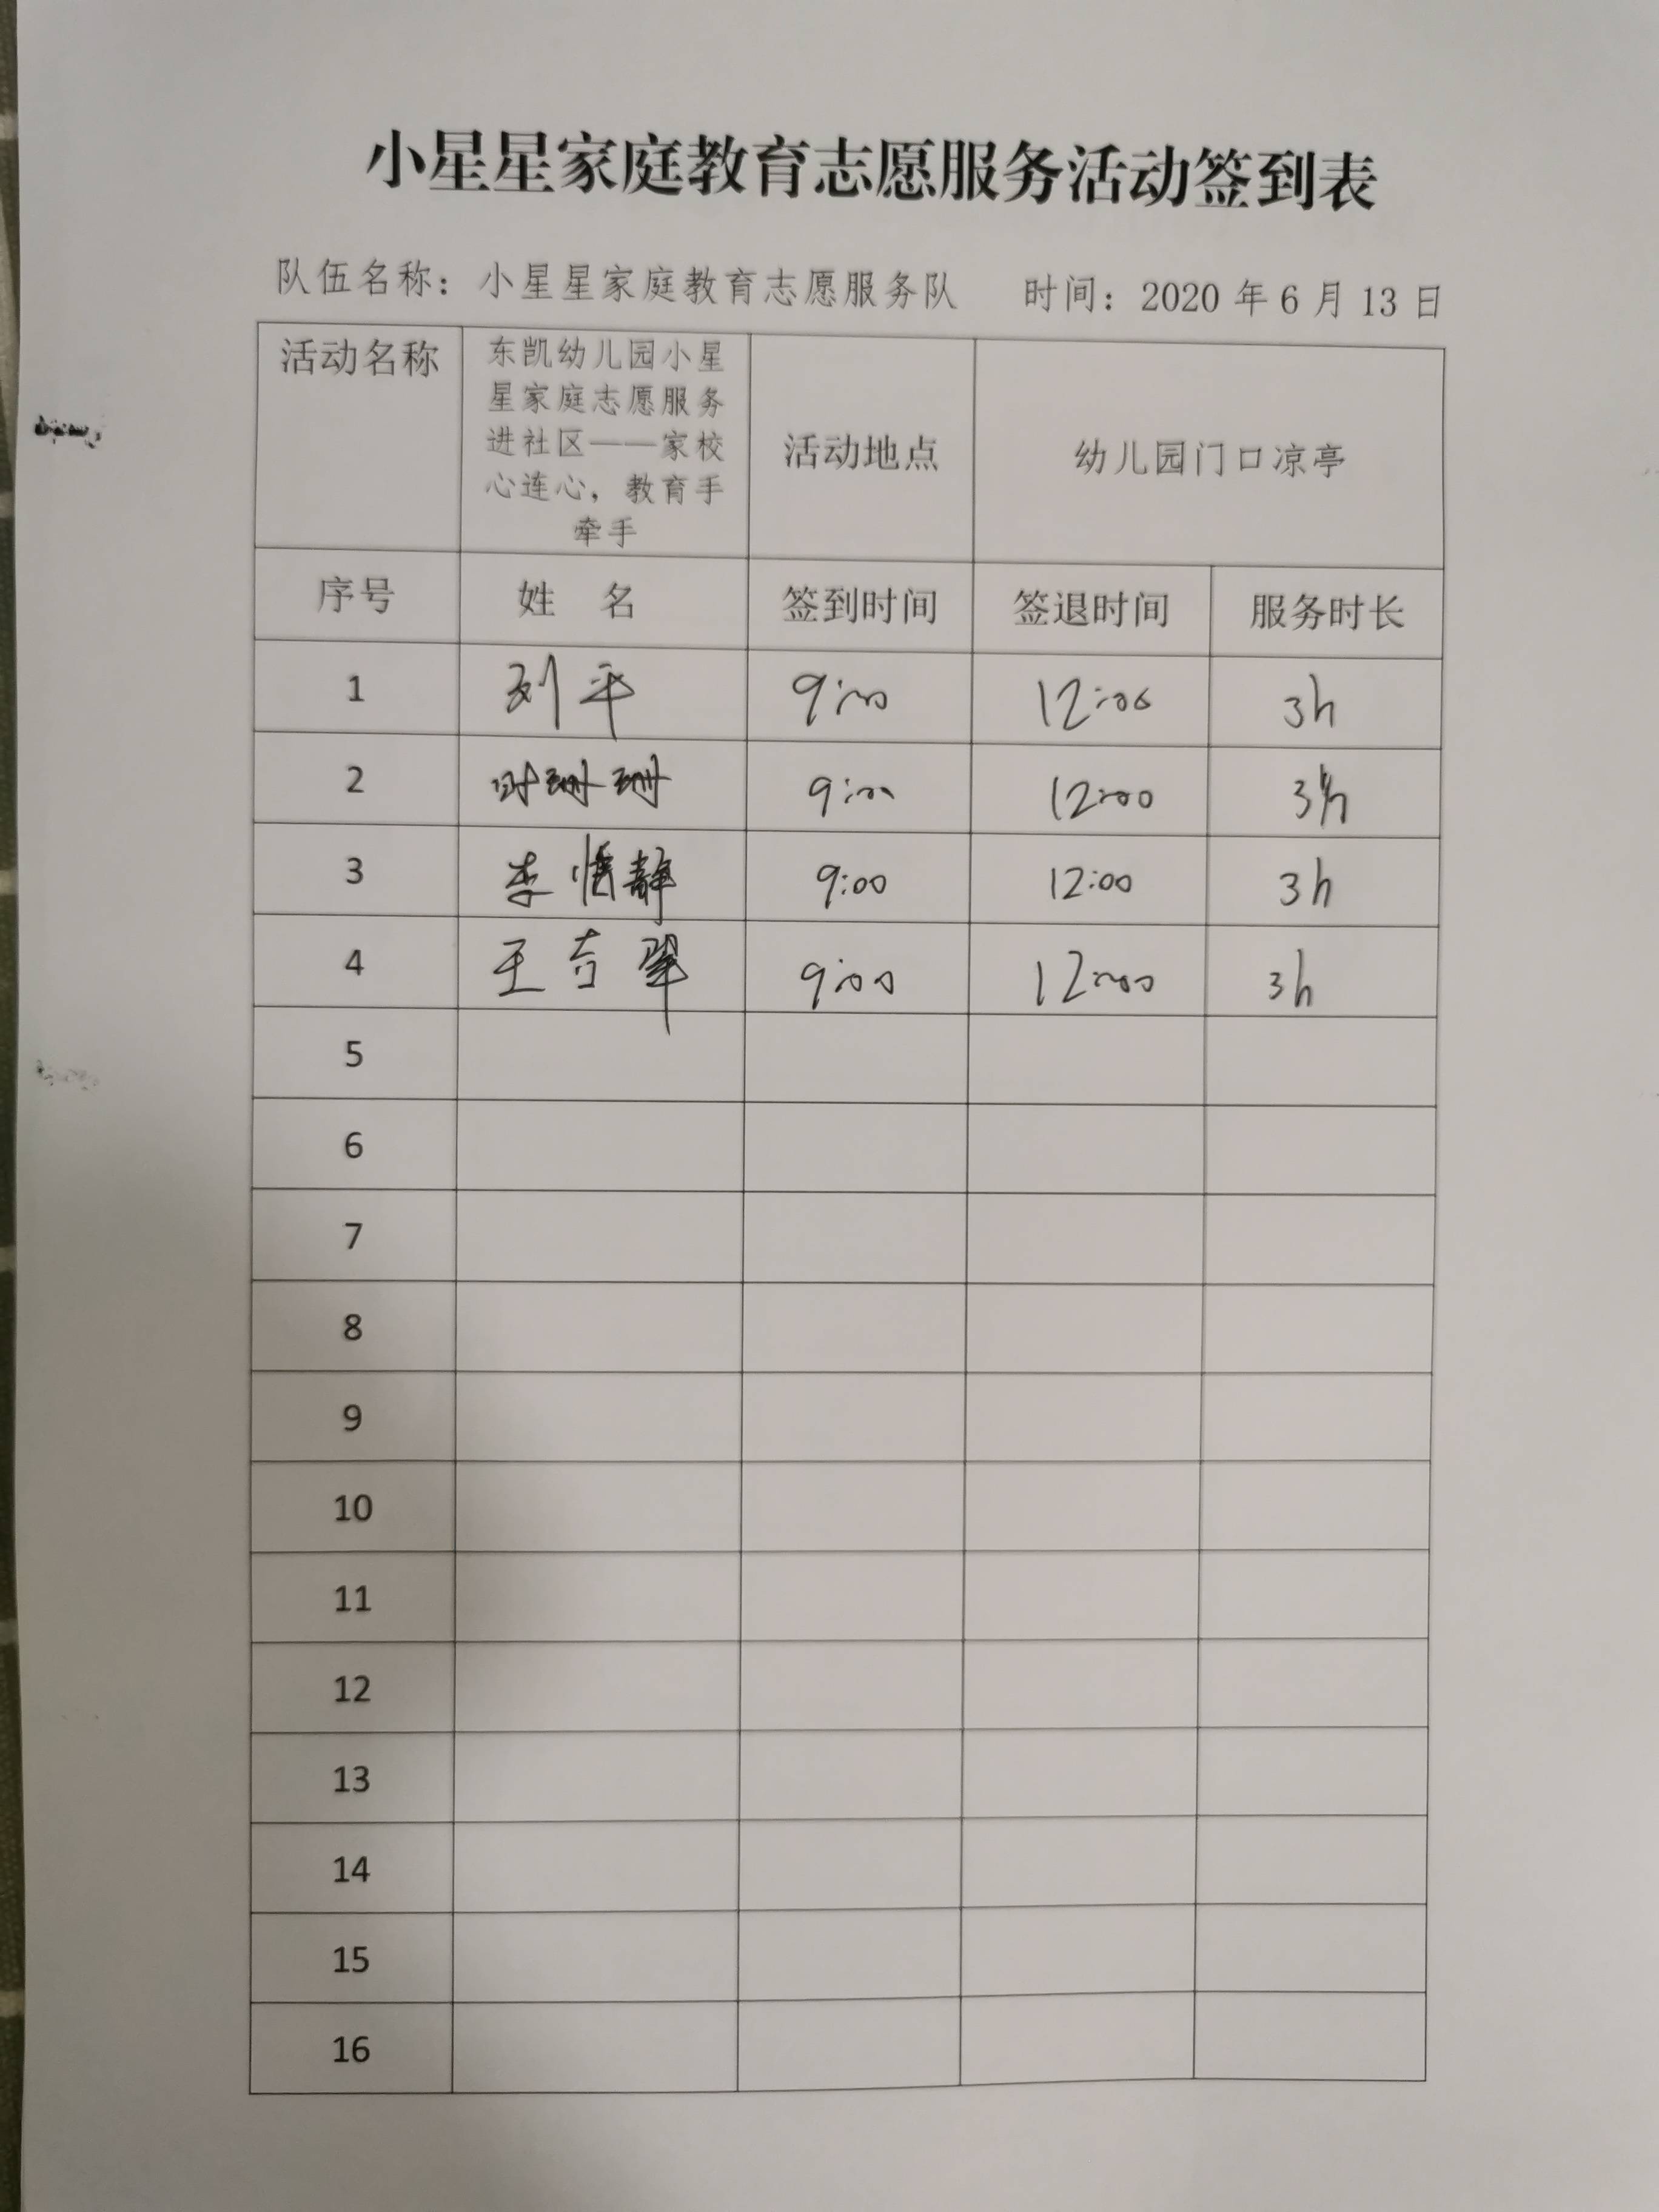 小星星家庭教育志愿服务活动签到表
队伍名称：小星星家庭教育志愿服务队 时间：2020 年 6 月 13 日
活动名称 东凯幼儿园小星星家庭志愿服务进社区——家校心连心，教育手牵手 活动地点 幼儿园门口凉亭
序号 姓 名 签到时间 签退时间 服务时长
1 刘平 9:00 12:00 3h
2 时珊珊 9:00 12:00 3h
3 李 静 9:00 12:00 3h
4 王 翠 9:00 12:00 3h
5
6
7
8
9
10
11
12
13
14
15
16